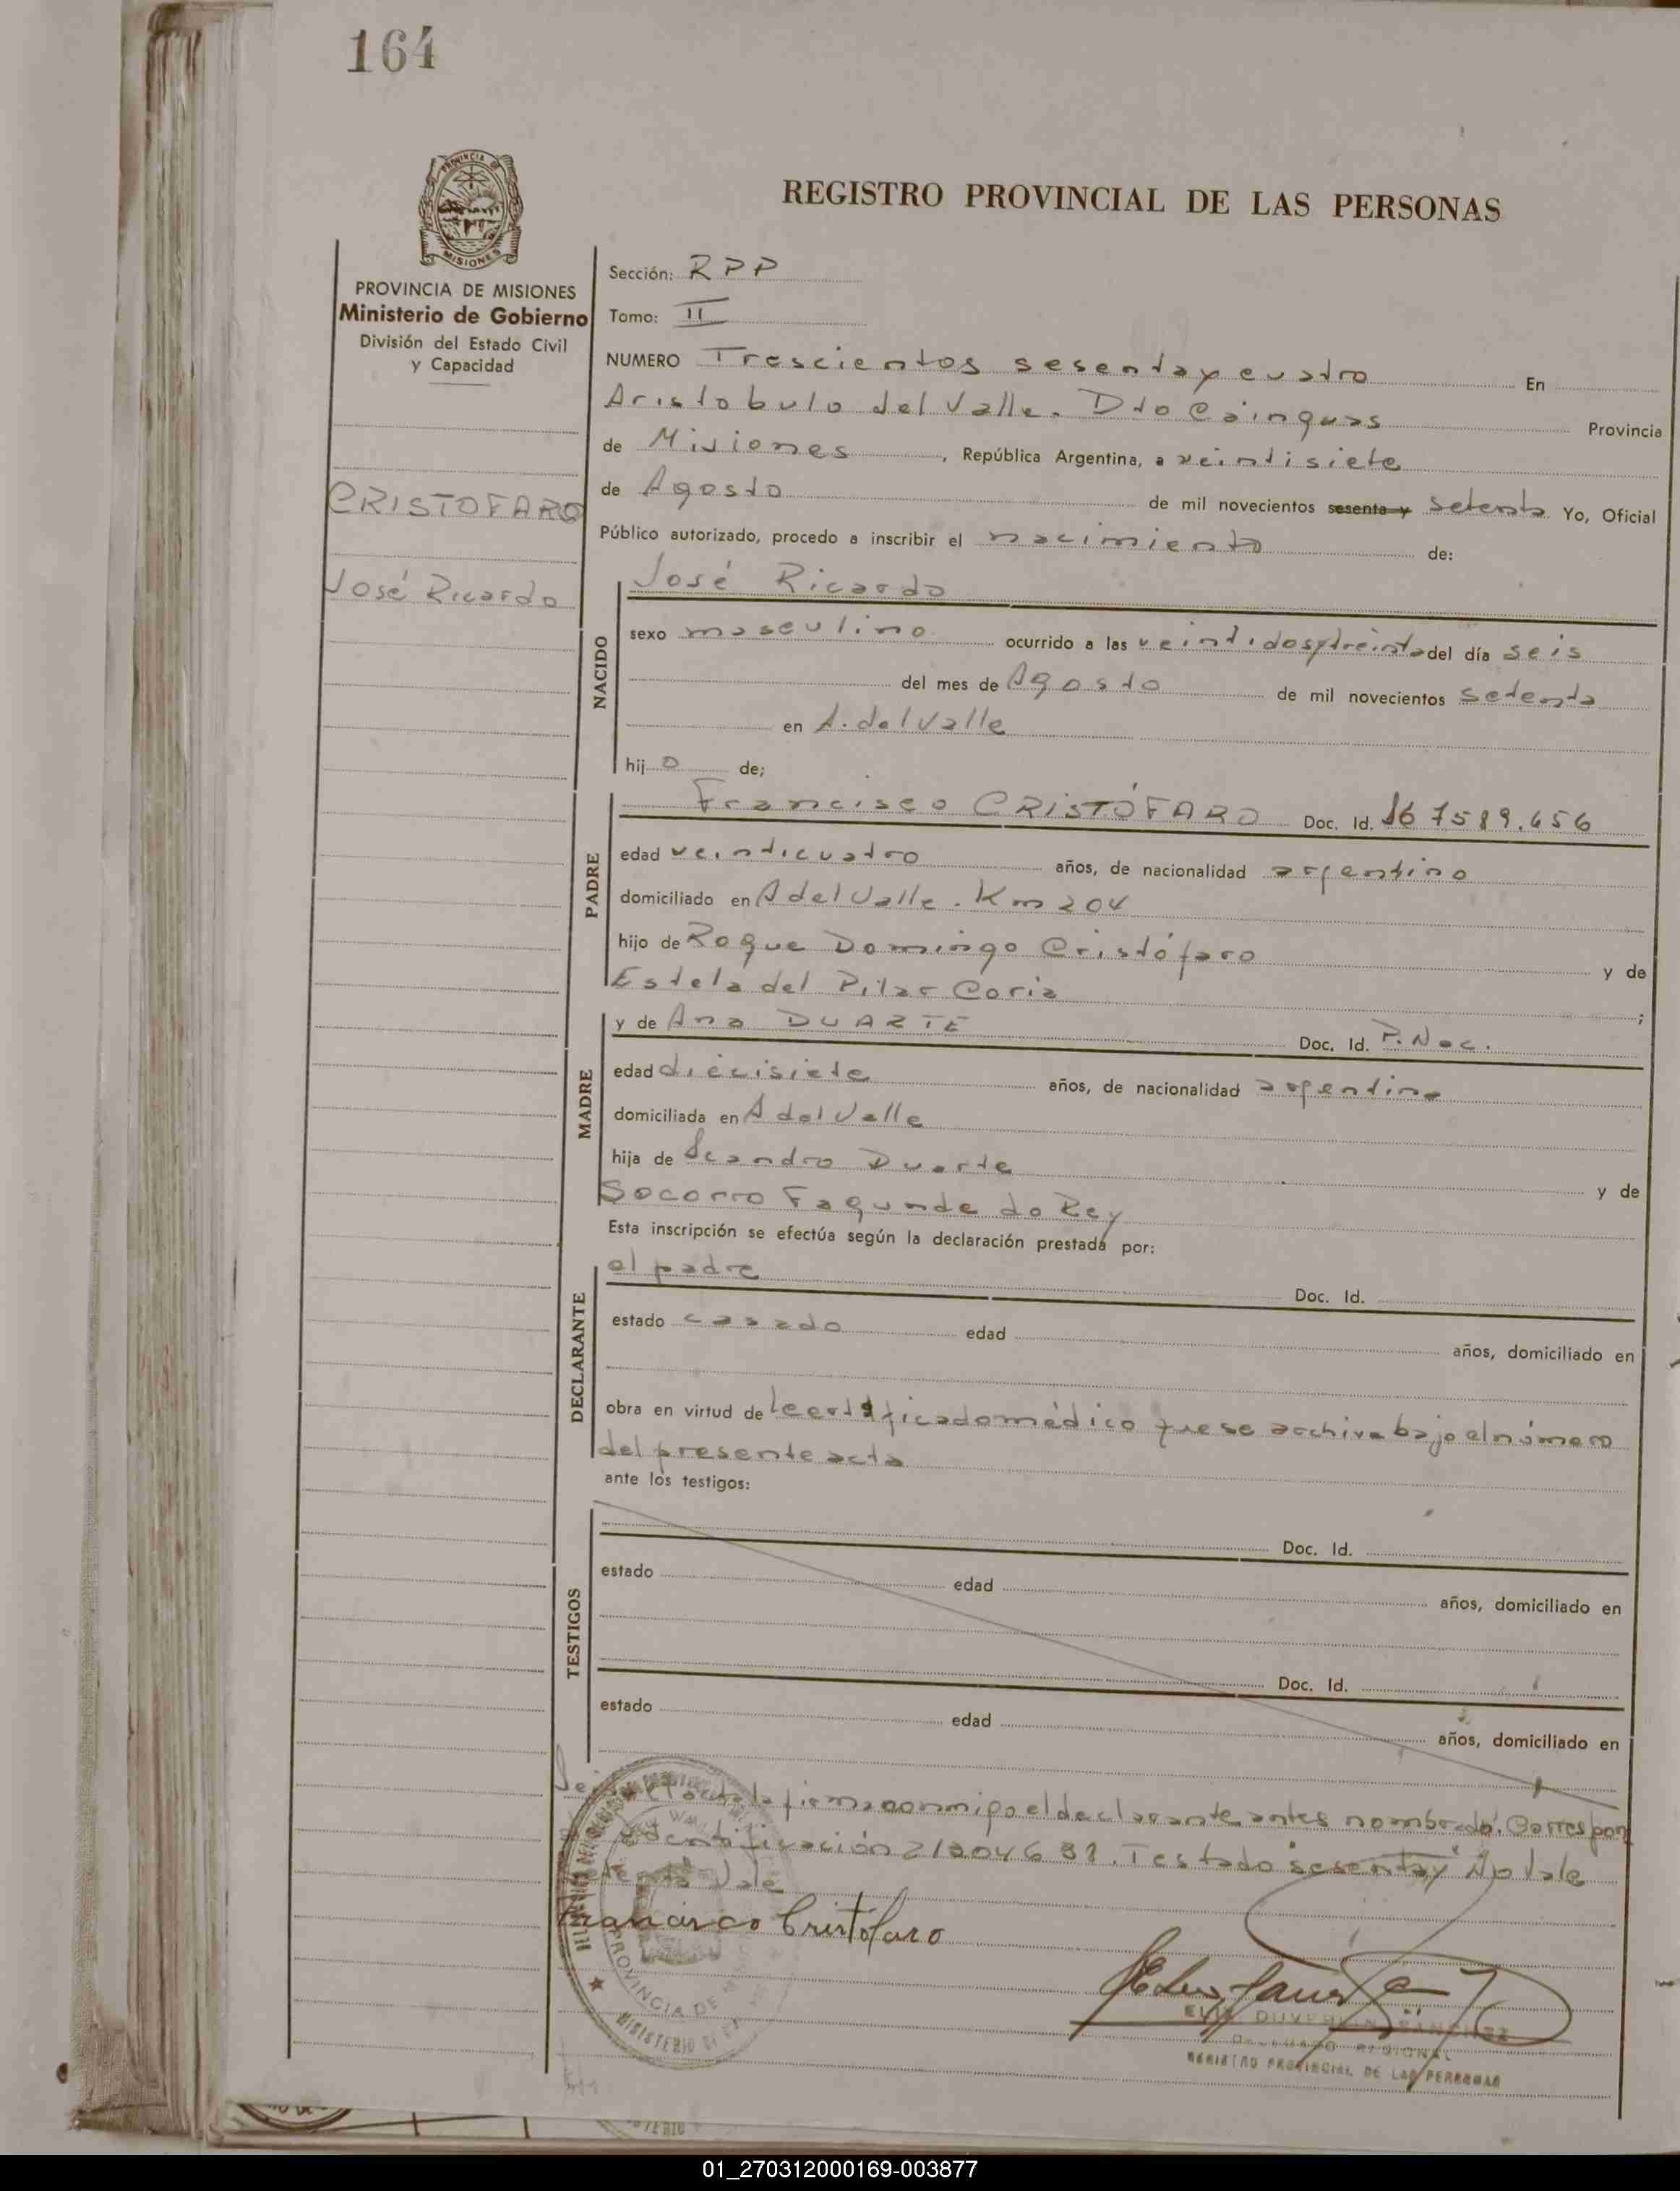 164
PROVINCIA DE
MISIONES
REGISTRO PROVINCIAL DE LAS PERSONAS
PROVINCIA DE MISIONES
Ministerio de Gobierno
División del Estado Civil
y Capacidad
CRISTOFARO
José Ricardo
Sección: RPP
Tomo: II
NUMERO Trescientos sesenta y cuatro En
Aristobulo del Valle. Dto Cainguas Provincia
de Misiones, República Argentina, a veintisiete
de Agosto de mil novecientos sesenta y setenta Yo, Oficial
Público autorizado, procedo a inscribir el nacimiento de:
NACIDO
José Ricardo
sexo masculino ocurrido a las veintidosytreinta del día seis
del mes de Agosto de mil novecientos setenta
en A. del Valle
hijo de;
PADRE
Francisco CRISTÓFARO Doc. Id. 7589.656
edad veinticuatro años, de nacionalidad argentino
domiciliado en A del Valle. Km 204
hijo de Roque Domingo Cristófaro y de
Estela del Pilar Coria ;
MADRE
y de Ana DUARTE Doc. Id. P. Nac.
edad diecisiete años, de nacionalidad argentina
domiciliada en A del Valle
hija de Leandro Duarte y de
Socorro Fagunde do Rey
Esta inscripción se efectúa según la declaración prestada por:
DECLARANTE
el padre Doc. Id.
estado casado edad años, domiciliado en
obra en virtud de certificado médico que se archiva bajo el número
del presente acta
ante los testigos:
TESTIGOS
Doc. Id.
estado edad años, domiciliado en
Doc. Id.
estado edad años, domiciliado en
la firma conmigo el declarante antes nombrado. Correspon
identificación Testado "sesenta y" No Vale
Vale
Francisco Cristófaro
PROVINCIA DE
MINISTERIO DE
SANCHEZ
REGIONAL
REGISTRO PROVINCIAL DE LAS PERSONAS
01_270312000169-003877